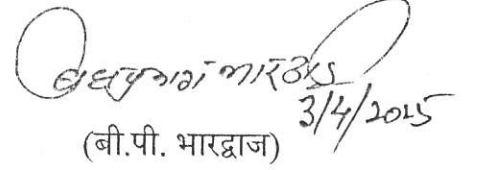 3/4/2025
(बी.पी. भारद्वाज)